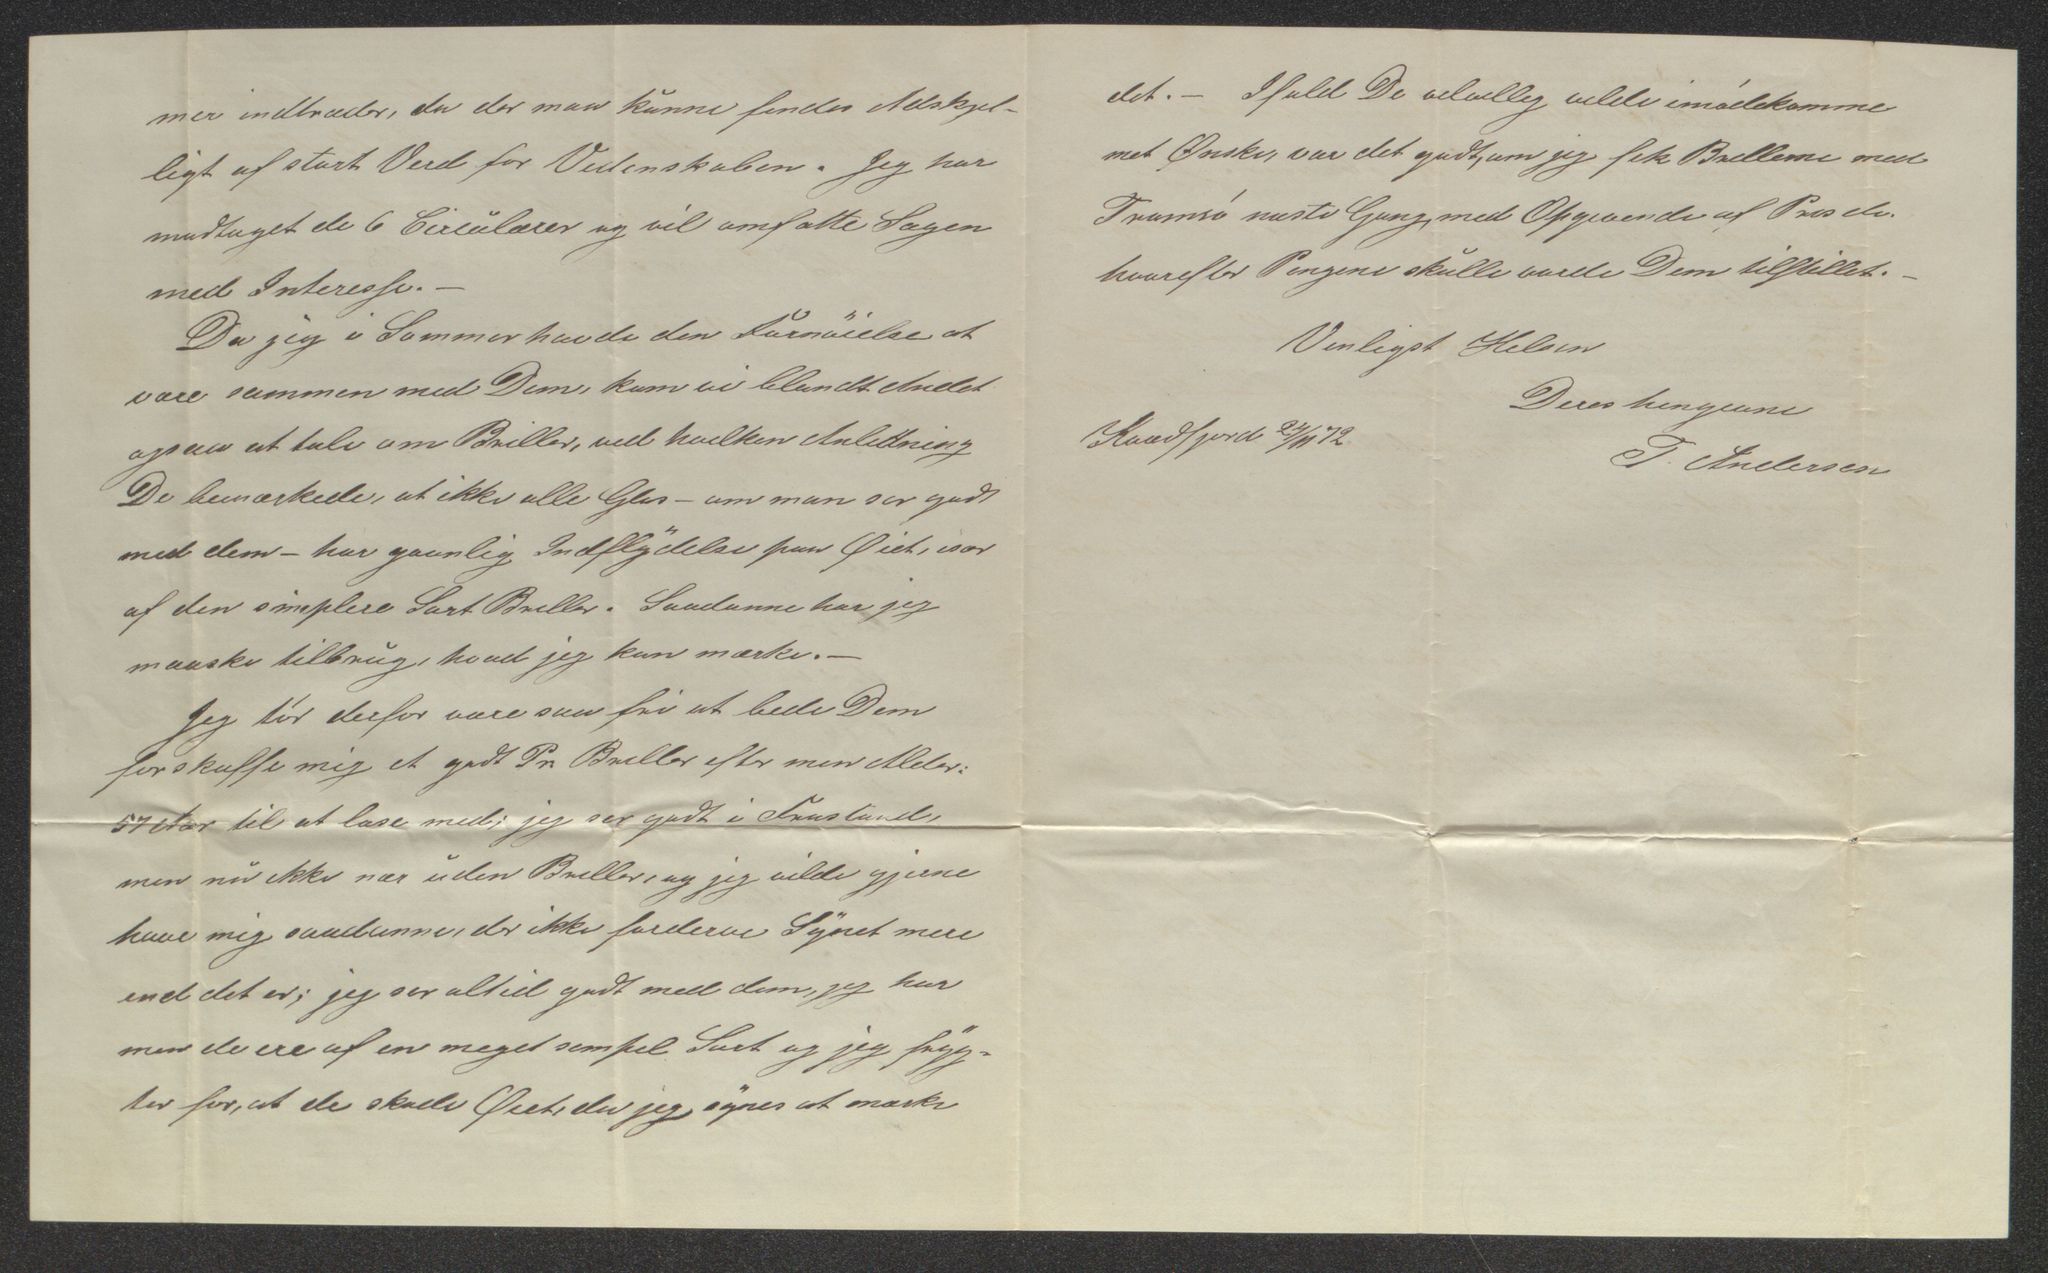 mer indtræder, da der maa kunne findes Adskjel-
ligt af stort Verd for Videnskaben. Jeg har
modtaget de 6 Circulærer og vil omfatte Sagen
med Interesse. —
Da jeg i Sommer havde den Fornöielse at
være sammen med Dem, kom vi blandt Andet
ogsaa at tale om Briller, ved hvilken Anledning
De bemærkede, at ikke alle Glas — om man ser godt
med dem — har gavnlig Indflÿdelse paa Öiet, især
af den simplere Sort Briller. Saadanne har jeg
maaske tilbrug, hvad jeg kan mærke. —
Jeg tör derfor være saa fri at bede Dem
forskaffe mig et godt Pr Briller efter min Alder:
57 Aar til at læse med; jeg ser godt i Frastand,
men nu ikke nær uden Briller, og jeg vilde gjerne
have mig saadanne, der ikke forderve Sÿnet mere
end det er; jeg ser altid godt med dem, jeg har
men de ere af en meget simpel Sort og jeg frÿg-
ter for, at de skade Öiet, da jeg sÿnes at mærke
det. — Ifald De velvillig vilde imödekomme
mit Ønske, var det godt, om jeg fik Brillerne med
Tromsö næste Gang, med Opgivende af Pris de.
hvorefter Pengene skulle vorde Dem tilstillet. —
Venligst Hilsen
Deres hengivne
T. Andersen
Kvædfjord 24/11 72